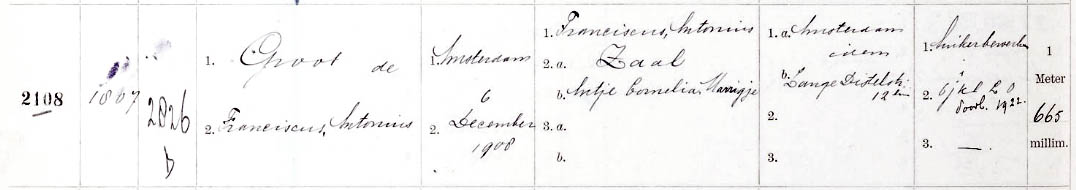 2108
1867
2826
b
1. Groot de
2. Franciscus, Antonius
1. Amsterdam
6
2. December
1908
1. Franciscus, Antonius
2. a. Zaal
b. Antje Cornelia, Marrigje
3. a.
b.
1. a. Amsterdam
idem
b. Lange Distelstr
12
2.
3.
1. Suikerbewerker
2. 6 jkl L O
1922.
3. —.
1
Meter
665
millim.